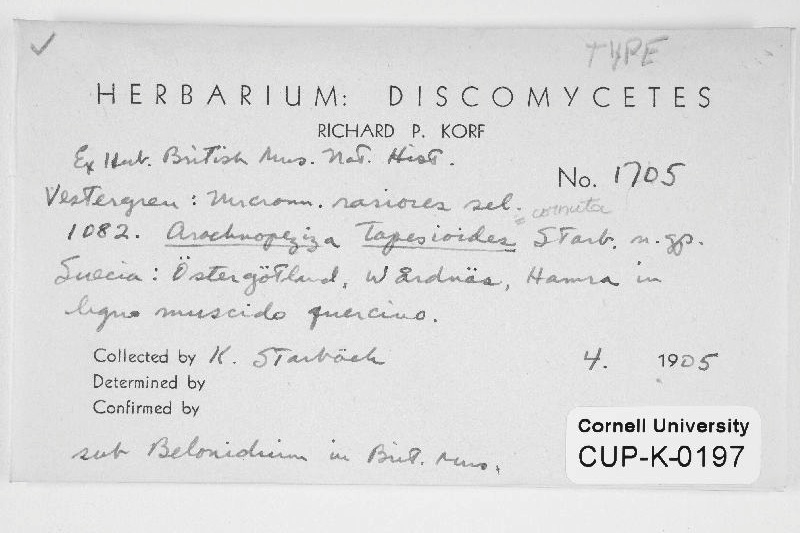 ✓
TYPE
HERBARIUM: DISCOMYCETES
RICHARD P. KORF
Ex Herb. British Mus. Nat. Hist.
No. 1705
Vestergren: Micromm. rariores sel.
= cornuta
1082. Arachnopeziza Tapesioides Starb. n. sp.
Suecia: Östergötland, Wårdnäs, Hamra in
ligno muscido quercino.
Collected by K. Starbäck 4. 1905
Determined by
Confirmed by
sub Belonidium in Brit. Mus.
Cornell University
CUP-K-0197